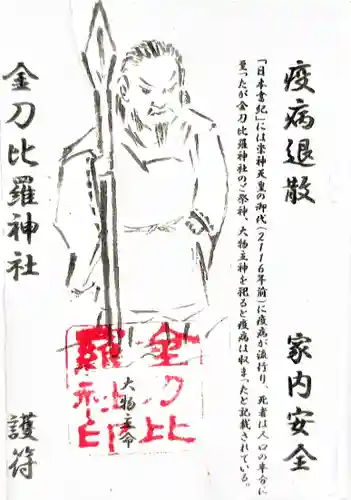 疫病退散
家内安全
「日本書紀」には崇神天皇の御代(2116年前)に疫病が流行り、死者は人口の半分に
至ったが金刀比羅神社のご祭神、大物主神を祀ると疫病は収まったと記載されている。
大物主命
金刀比
羅神社
印
金刀比羅神社
護符